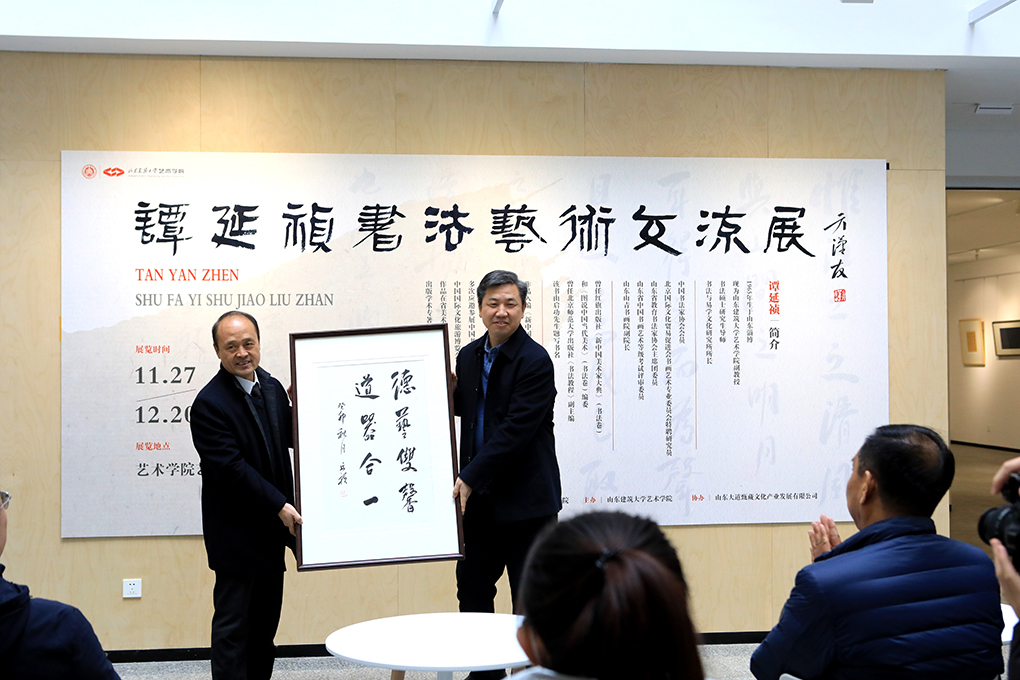 山东建筑大学艺术学院
譚延禎書法藝術交流展
方漢友
TAN YAN ZHEN
SHU FA YI SHU JIAO LIU ZHAN
展览时间
11.27
12.20
展览地点
艺术学院
谭延祯｜简介
1965年生于山东淄博
现为山东建筑大学艺术学院副教授
书法硕士研究生导师
书法与易学文化研究所所长
中国书法家协会会员
北京国际文化贸易促进会书画艺术专业委员会特聘研究员
山东省教育书法家协会主席团委员
山东省中国书画艺术等级考试评审委员
山东山古书画院副院长
曾任红旗出版社《新中国美术家大典》（书法卷）
和《图说中国当代美术》（书法卷）编委
曾任北京师范大学出版社《书法教程》副主编
该书由启功先生题写书名
多次应邀参展中国
中国国际文化旅游博览
作品在省美术
出版学术专著
德藝雙馨
道器合一
癸卯秋月
院
主办｜山东建筑大学艺术学院
协办｜山东大道甄藏文化产业发展有限公司